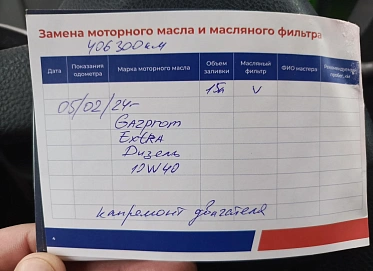 Замена моторного масла и масляного фильтра
406300км
Дата Показания одометра Марка моторного масла Объем заливки Масляный фильтр ФИО мастера Рекомендуемый пробег, км
15л V
05/02/24г
Gazprom
Extra
Дизель
10W40
капремонт двигателя